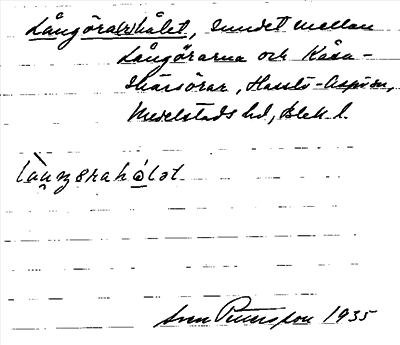 Långörahålet, sundet mellan
Långörarna och Kåsa-
skärsörar, Hasslö-Aspöån,
Medelstads hd, Blek. l.
låuŋərahålət
Sven Peterson 1935